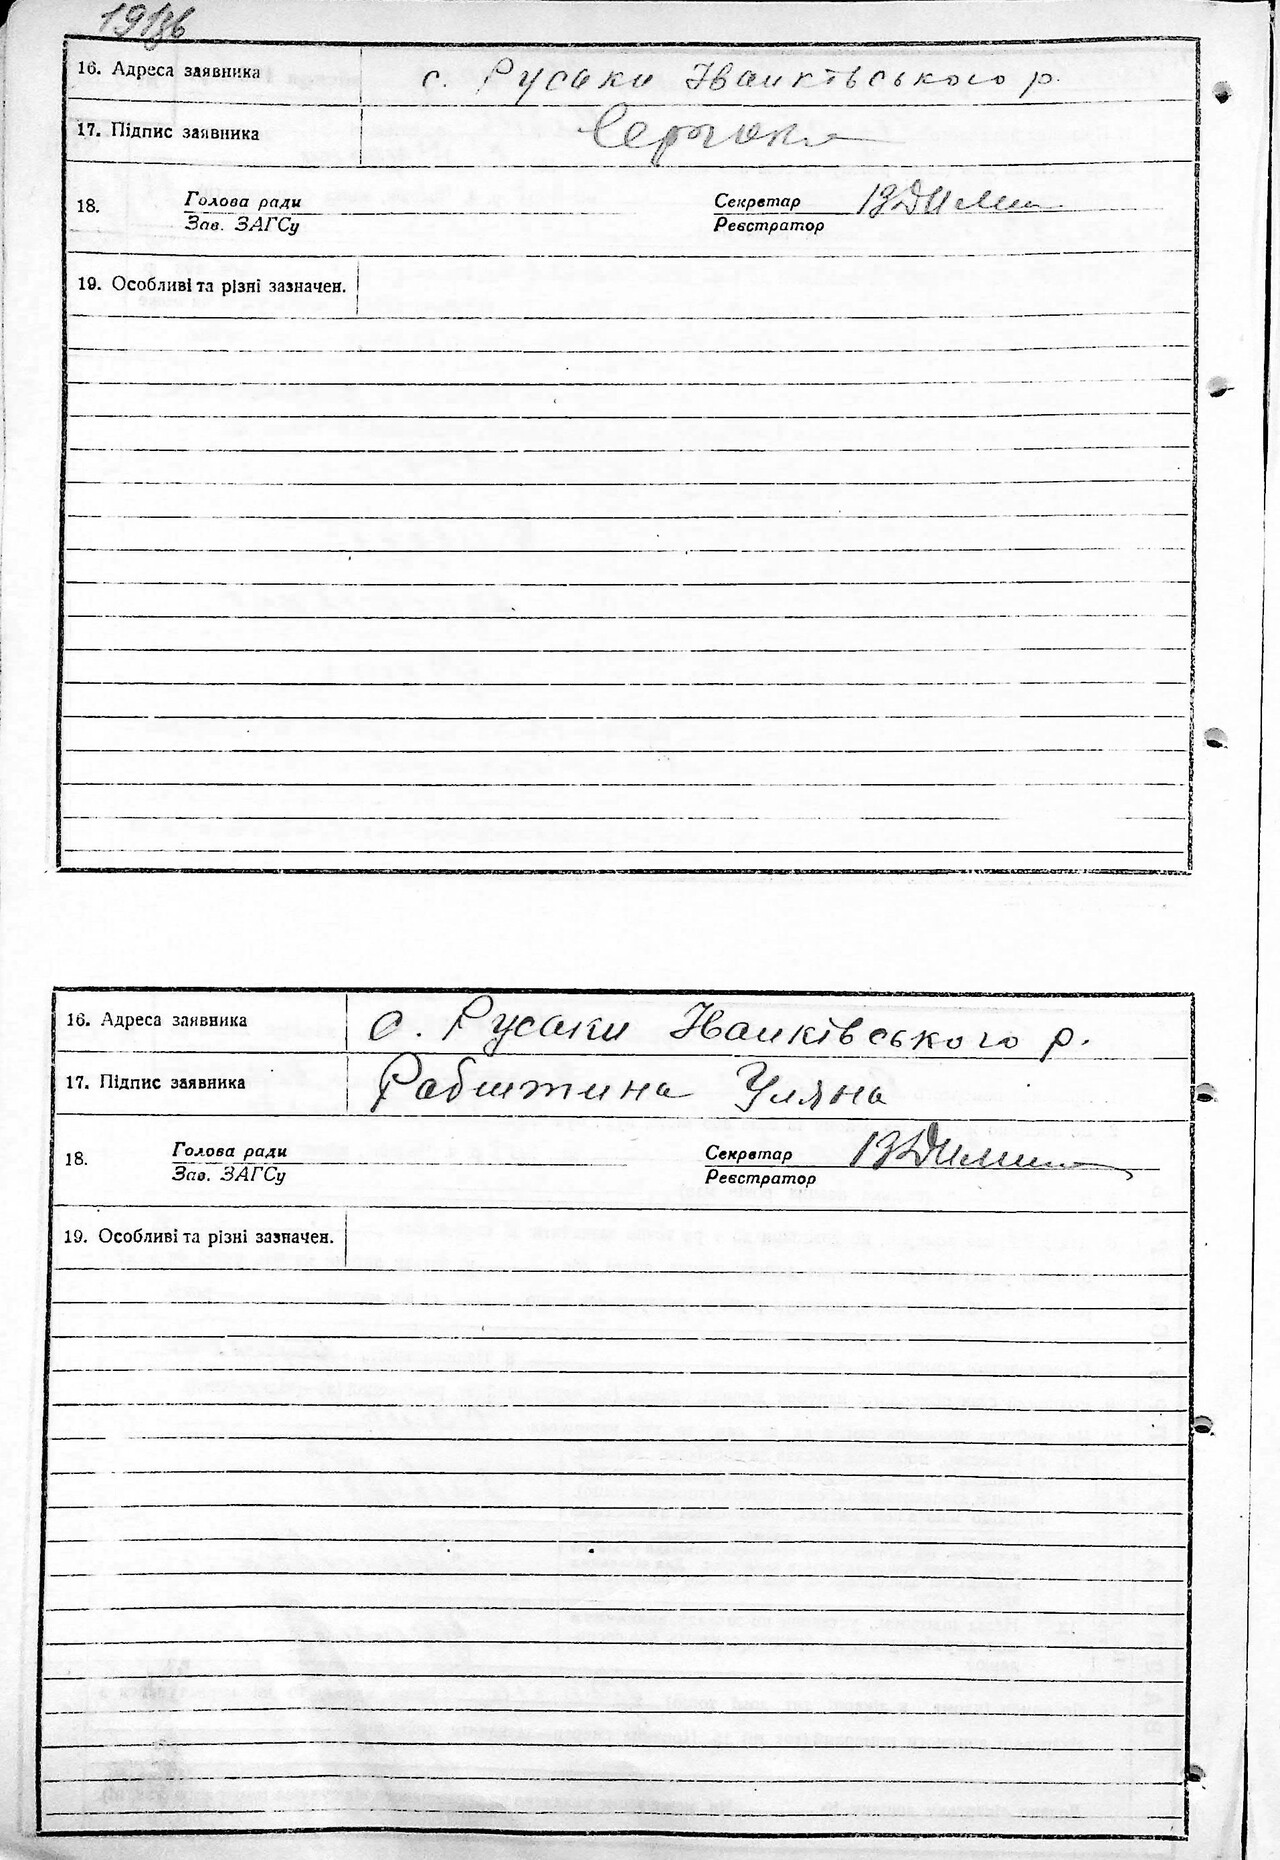 16. Адреса заявника с. Русаки Іванківського р.
17. Підпис заявника
18. Голова ради Секретар
Зав. ЗАГСу Реєстратор
19. Особливі та різні зазначен.
16. Адреса заявника с. Русаки Іванківського р.
17. Підпис заявника Рабштина Уляна
18. Голова ради Секретар
Зав. ЗАГСу Реєстратор
19. Особливі та різні зазначен.